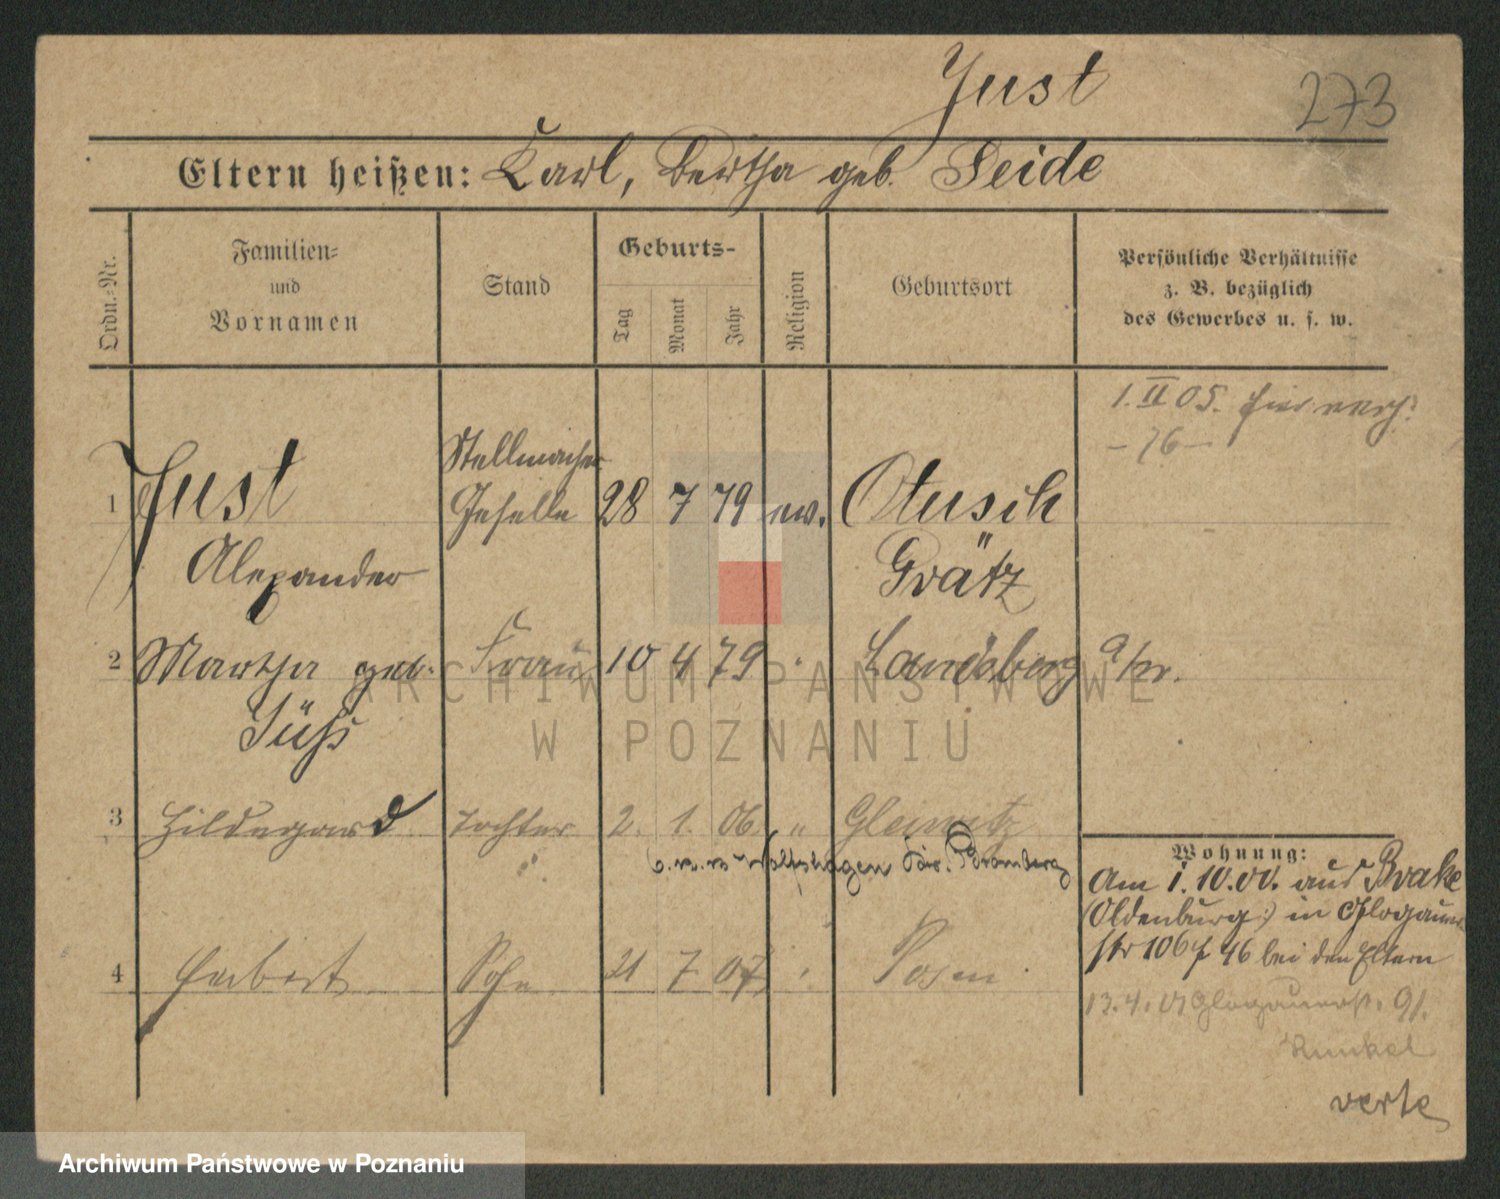 Just
273
Eltern heißen: Karl, Bertha geb. Seide
Ordn.-Nr.
Familien-
und
Vornamen
Stand
Geburts-
Tag
Monat
Jahr
Religion
Geburtsort
Persönliche Verhältnisse
z. B. bezüglich
des Gewerbes u. s. w.
1. II 05. hier
- 76 -
1 Just Stellmacher Geselle 28 7 79 ev. Otusch
Alexander Grätz
2 Martha geb. Frau 10 4 79 " Landsberg a/W.
Süßs
3 Hildegard Tochter 2. 1. 06. " Gleiwitz
Wolfshagen Kr. Bromberg
4 Herbert Sohn 21 7 07 " Posen
Wohnung:
Am 1. 10. 00. aus Brake
(Oldenburg) in Glogauer
str 106 bei den Eltern
13.4. 01 Glogauerst. 91.
Kunkel
verte
ARCHIWUM PAŃSTWOWE
W POZNANIU
Archiwum Państwowe w Poznaniu